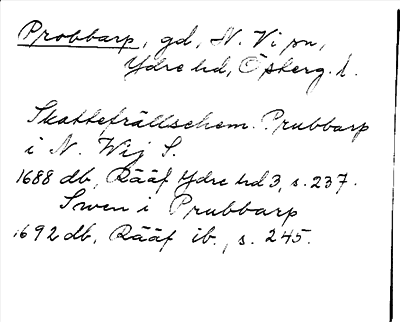 Probbarp, gd, N. Vi sn,
Ydre hd, Österg. l.
Skattefrällsehem. Prubbarp
i N. Wij S.
1688 db, Rääf Ydre hd 3, s. 237.
Swen i Prubbarp
1692 db, Rääf ib., s. 245.